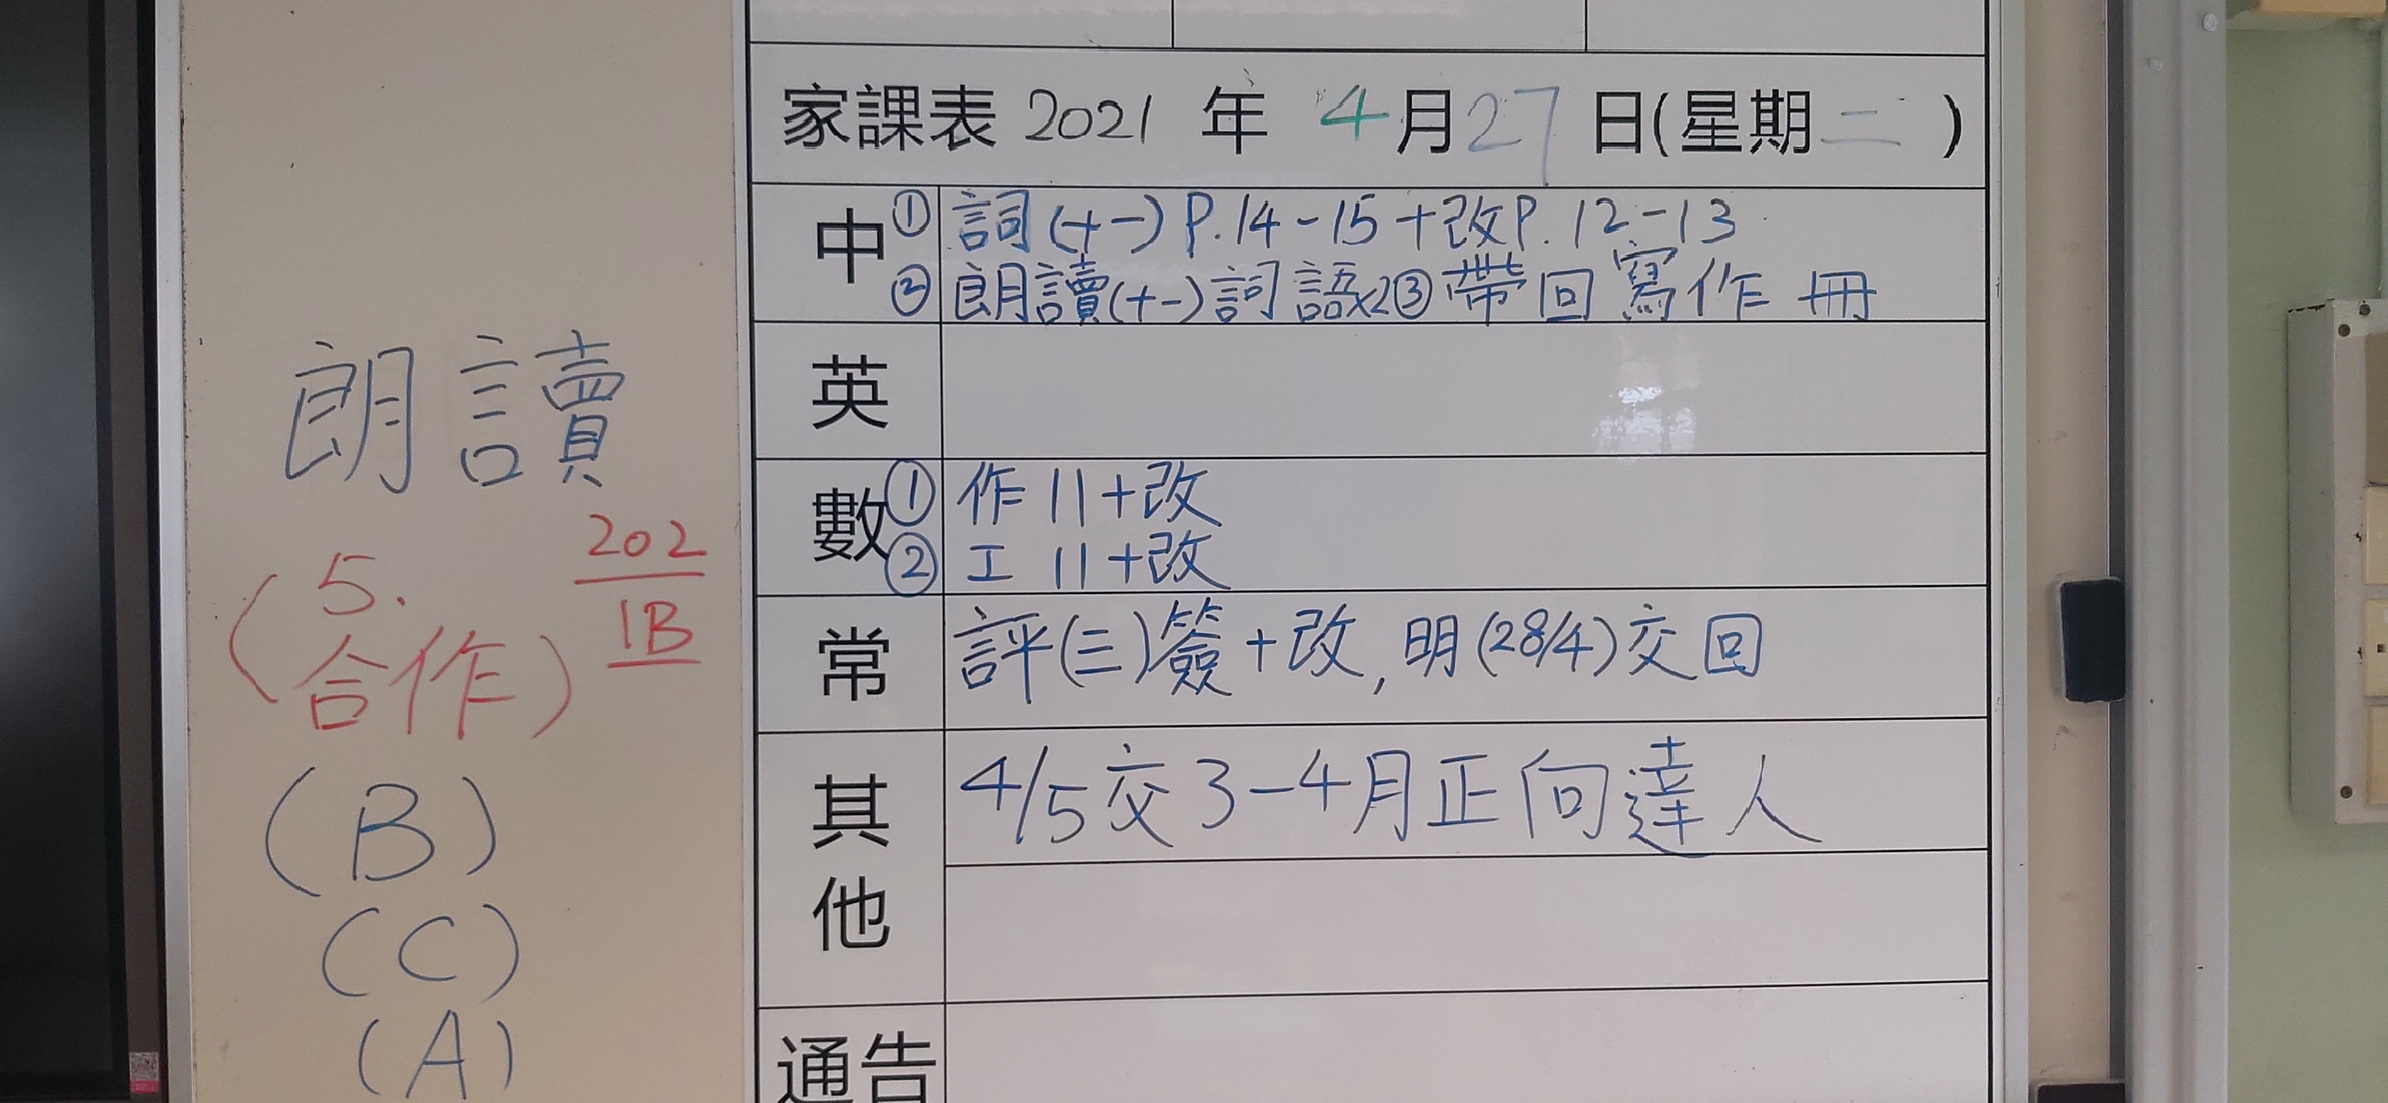 朗讀
202
1B
(5.
合作)
(B)
(C)
(A)
家課表 2021 年 4月27日(星期二)
中 ① 詞(十一) P.14-15+改P.12-13
② 朗讀(十一)詞語x2 ③ 帶回寫作冊
英
數 ① 作 11+改
② 工 11+改
常 評(三)簽+改, 明(28/4)交回
其他 4/5交3-4月正向達人
通告